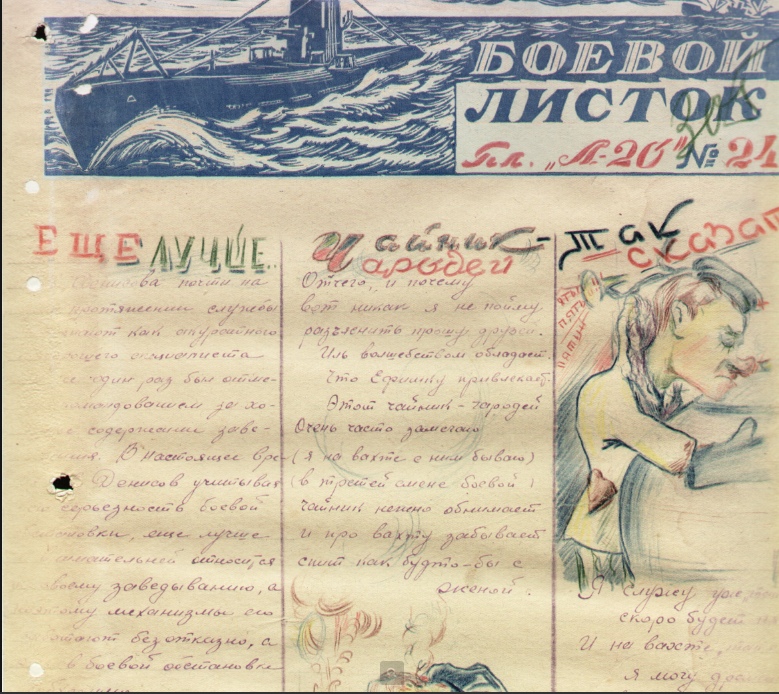 БОЕВОЙ
ЛИСТОК
Пл. „Л-20" № 24
ЕЩЕ ЛУЧШЕ..
Денисова почти на
протяжении службы
знают как аккуратного
специалиста
один раз был отме-
командованием за хо-
содержание заве-
В настоящее вре-
Денисов учитывая
серьезность боевой
еще лучше
внимательней относится
своему заведыванию, а
поэтому механизмы его
работают безотказно, а
в боевой обстановке
Чайник-
чародей
Отчего, и почему
вот никак я не пойму
разъяснить прошу друзья.
Иль волшебством обладает.
Что Ефимку привлекает.
Этот чайник - чародей
Очень часто замечаю
(я на вахте с ним бываю)
(в третей смене боевой)
чайник нежно обнимает
и про вахту забывает
спит как будто-бы с
женой.
Так
сказат
Я служу уже
скоро будет
И на вахте,
я могу